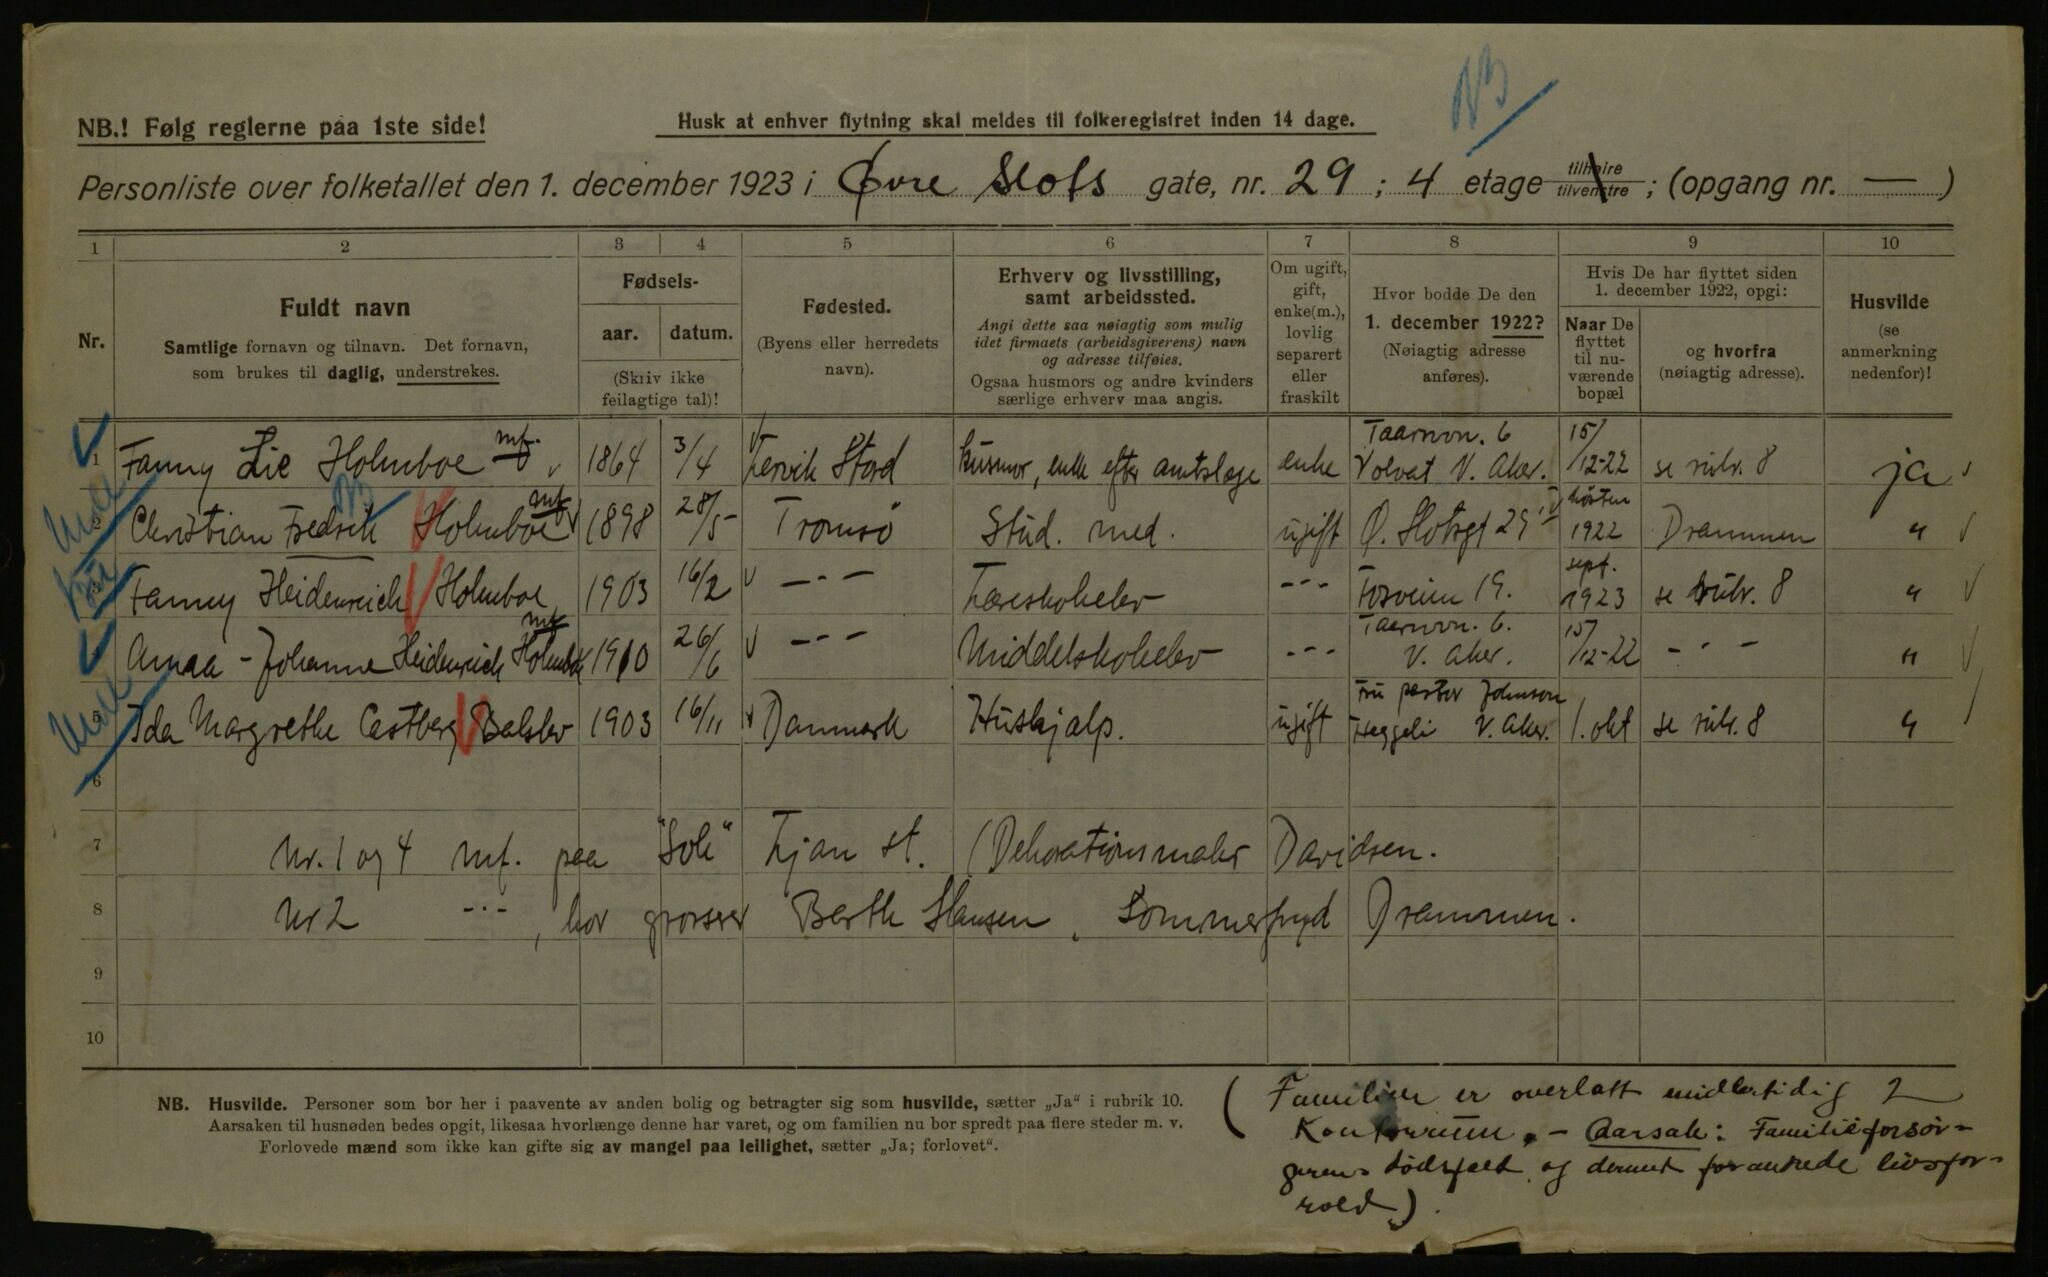 NB
NB.! Følg reglerne paa 1ste side!
Husk at enhver flytning skal meldes til folkeregistret inden 14 dage.
Personliste over folketallet den 1. december 1923 i Øvre Slots gate, nr. 29 ; 4 etage tilhøire tilvenstre ; (opgang nr. — )
1 2 3 4 5 6 7 8 9 10
Nr.
Fuldt navn
Samtlige fornavn og tilnavn. Det fornavn,
som brukes til daglig, understrekes.
Fødsels-
aar. datum.
(Skriv ikke
feilagtige tal)!
Fødested.
(Byens eller herredets
navn).
Erhverv og livsstilling,
samt arbeidssted.
Angi dette saa nøiagtig som mulig
idet firmaets (arbeidsgiverens) navn
og adresse tilføies.
Ogsaa husmors og andre kvinders
særlige erhverv maa angis.
Om ugift,
gift,
enke(m.),
lovlig
separert
eller
fraskilt
Hvor bodde De den
1. december 1922?
(Nøiagtig adresse
anføres).
Hvis De har flyttet siden
1. december 1922, opgi:
Naar De
flyttet
til nu-
værende
bopæl
og hvorfra
(nøiagtig adresse).
Husvilde
(se
anmerkning
nedenfor)!
1 Fanny Lie Holmboe mf. 1864 3/4 Lervik Stord Husmor, enke efter amtslæge enke Taarnvn. 6 Volvat V. Aker. 15/12-22 se rubr. 8 ja
2 Christian Fredrik Holmboe mf 1898 28/5 Tromsø Stud. med. ugift Ø. Slotsgt 29 IV høsten 1922 Drammen "
NB
3 Fanny Heidenreich Holmboe 1903 16/2 — " — Læreskoleelev - - - Fosveien 19. sept. 1923 se rubr. 8 "
4 Anna - Johanne Heidenreich Holmboe mf 1910 26/6 — " — Middelskoleelev - - - Taarnvn. 6. V. Aker. 15/12-22 - " - "
5 Ida Margrethe Castberg Balslev 1903 16/11 Danmark Hushjælp. ugift Fru pastor Johnson Heggeli V. Aker. 1. okt se rubr. 8 "
6
7 Nr. 1 og 4 mf. paa "Sole" Ljan st. (Dekorationsmaler Davidsen.
8 Nr 2 - " - , hos grosserer Barth Hansen, Sommerfryd Drammen.
9
10
NB. Husvilde. Personer som bor her i paavente av anden bolig og betragter sig som husvilde, sætter „Ja“ i rubrik 10.
Aarsaken til husnøden bedes opgit, likesaa hvorlænge denne har varet, og om familien nu bor spredt paa flere steder m. v.
Forlovede mænd som ikke kan gifte sig av mangel paa leilighet, sætter „Ja; forlovet“.
(Familien er overlatt midlertidig 2
Kontorrum. - Aarsak: Familieforsør-
gerens dødsfald og dermed forandrede livsfor-
hold).